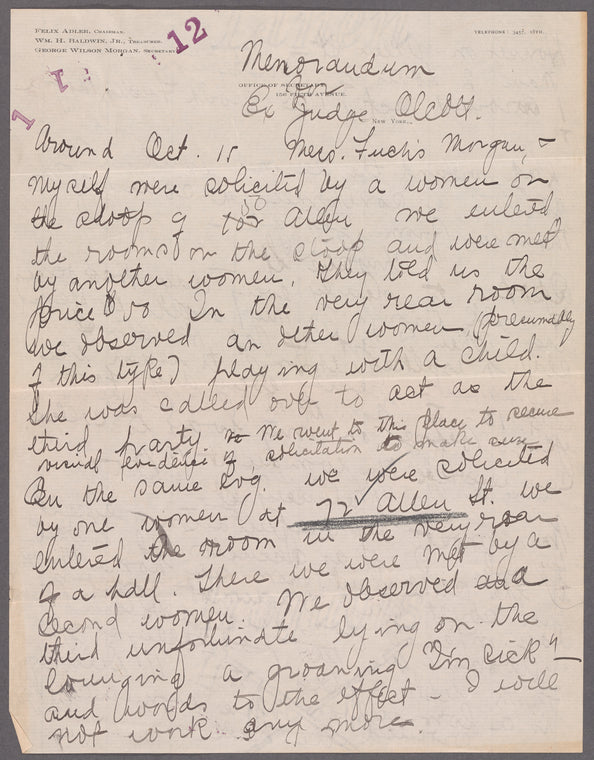 FELIX ADLER, CHAIRMAN.
WM. H. BALDWIN, JR., TREASURER.
GEORGE WILSON MORGAN, SECRETARY
TELEPHONE: 3457, 18TH.
1 1 12
Memorandum
for
OFFICE OF SECRETARY
156 FIFTH AVENUE.
Ex Judge Olcott.
NEW YORK,
Around Oct. 15 Mess. Fuchs Morgan, &
myself were solicited by a women on
the stoop of 50 Allen we entered
the rooms on the stoop and were met
by another women. They told us the
price $ 50 In the very rear room
we observed an other women (presumably
of this type) playing with a child.
She was called over to act as the
third party We went to this place to secure
visual evidence of solicitation to make sure
On the same evg. we were solicited
by one women at 72 Allen St. we
entered the room in the very rear
of a hall. There we were met by a
second women. We observed a
third unfortunate lying on the
lounging a groaning "I'm sick"
and words to the effect - I will
not work any more.